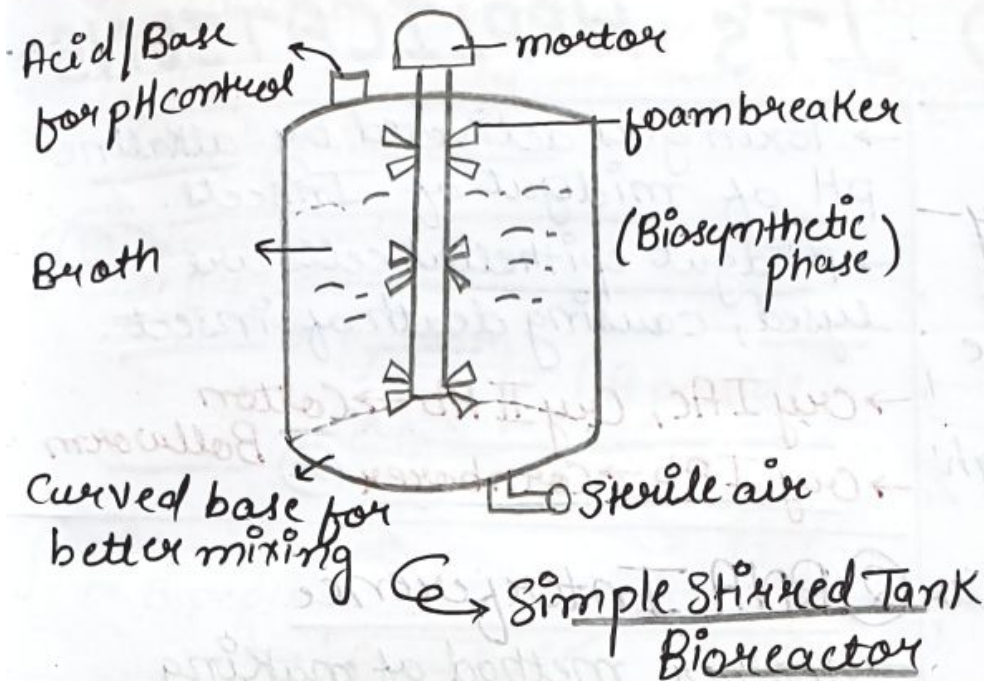 Acid/Base
for pH control
mortor
foambreaker
Broth
(Biosynthetic
phase)
Curved base for
better mixing
Sterile air
Simple Stirred Tank
Bioreactor